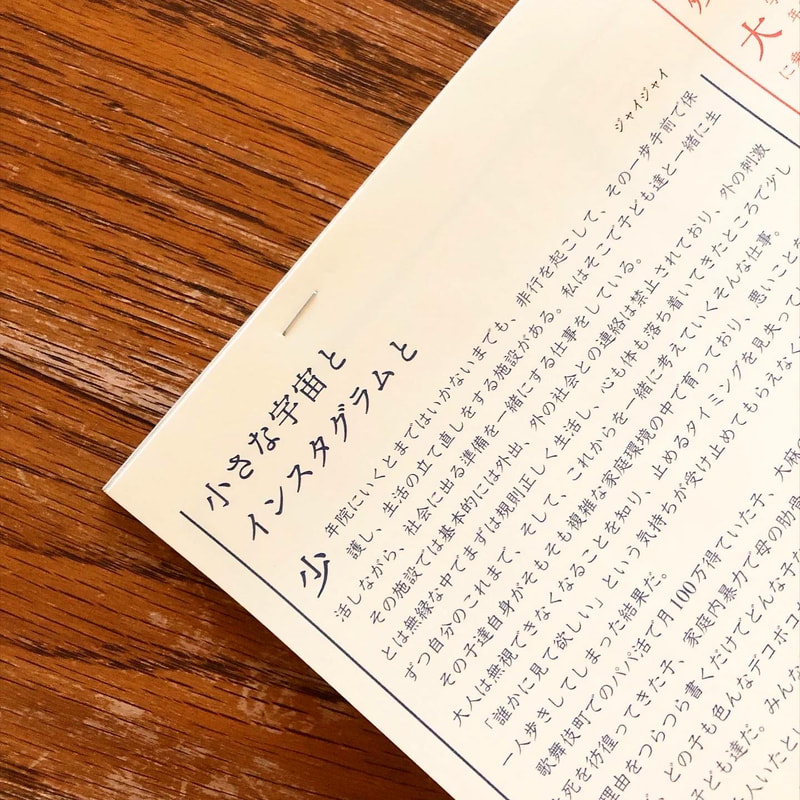 小さな宇宙と
インスタグラムと
ジャイジャイ
少年院にいくとまではいかないまでも、非行を起こして、その一歩手前で保
護し、生活の立て直しをする施設がある。私はそこで子ども達と一緒に生
活しながら、社会に出る準備を一緒にする仕事をしている。
その施設では基本的には外出、外の社会との連絡は禁止されており、外の刺激
とは無縁な中でまずは規則正しく生活し、心も体も落ち着いてきたところで少し
ずつ自分のこれまで、そして、これからを一緒に考えていくそんな仕事。
その子達自身がそもそも複雑な家庭環境の中で育っており、悪いことを
大人は無視できなくなることを知り、止めるタイミングを見失って
「誰かに見て欲しい」という気持ちが受け止めてもらえなく
一人歩きしてしまった結果だ。
歌舞伎町でのパパ活で月100万得ていた子、大麻
死を彷徨ってきた子、家庭内暴力で母の肋骨
理由をつらつら書くだけでどんな子だ
、どの子も色んなデコボコ
子ども達だ。みんな
人いたとし
大
年
に